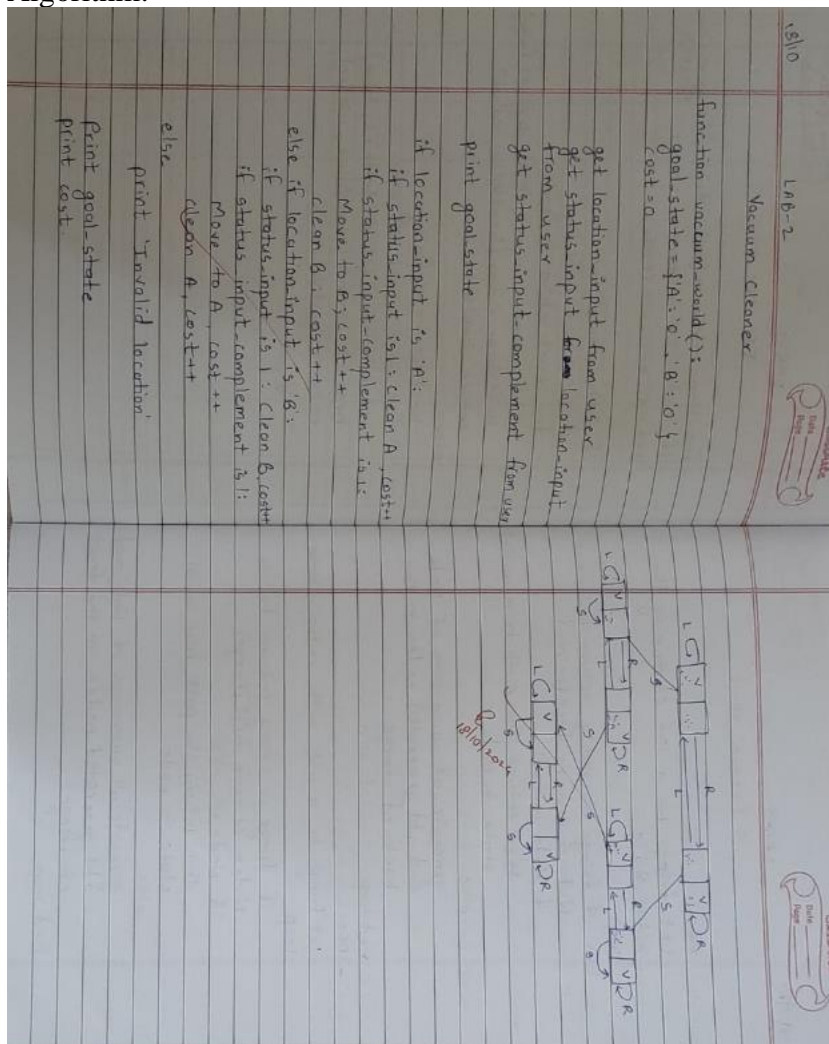 Algorithm:
18/10
LAB-2
Date
Page
Vacuum Cleaner
function vacuum_world():
goal_state = {'A':'0', 'B':'0'}
cost = 0
get location_input from user
get status_input for location_input
from user
get status_input-complement from user
print goal_state
if location_input is 'A':
if status_input is 1: Clean A, cost++
if status_input-complement is 1:
Move to B; cost++
clean B; cost++
else if location_input is 'B':
if status_input is 1: Clean B, cost++
if status_input-complement is 1:
Move to A, cost++
clean A, cost++
else
print 'Invalid location'
Print goal_state
print cost.
Date
Page
R
L V V R
L
S S
R R
L V V R L V V R
L L
S S S S
R
L V V R
L
S S
18/10/2024